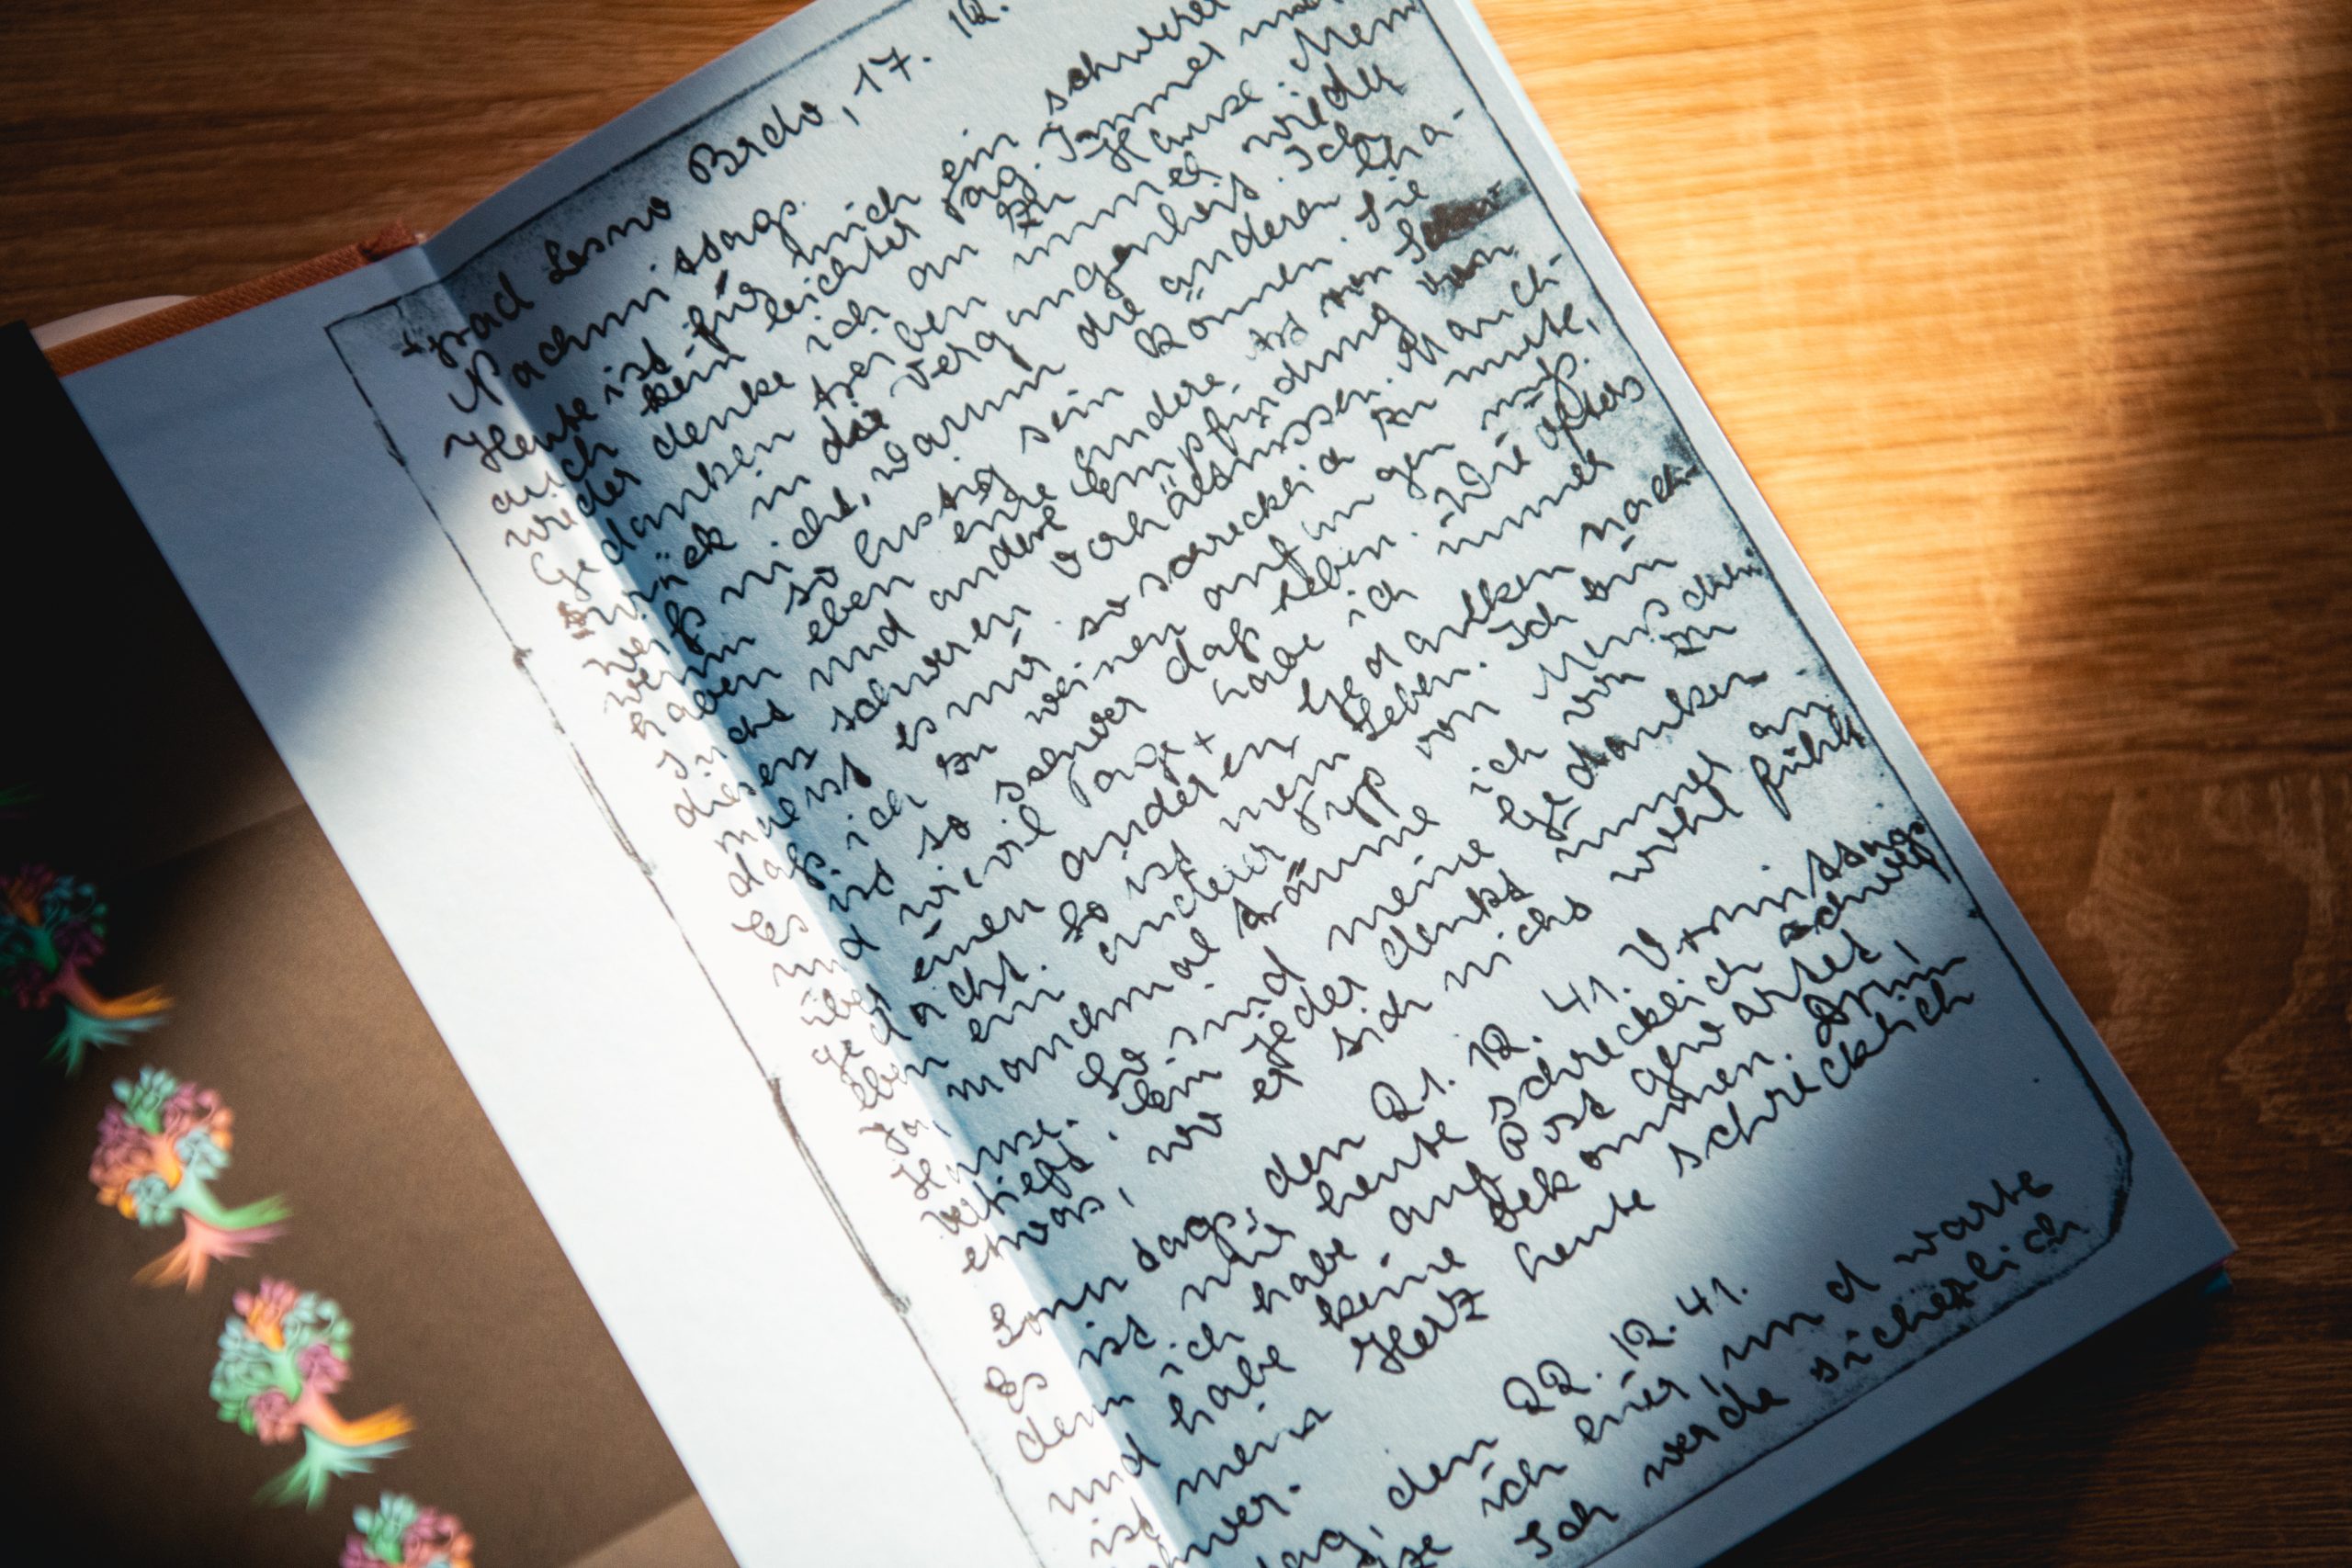 grad Lesno Brdo, 17. 12.
Nachmittags.
Heute ist für mich ein schwerer
auch kein leichter Tag. Immer
wieder denke ich an zu Hause. Mein
Gedanken treiben immer wieder
zurück in die Vergangenheit. Ich
weiß nicht, warum die anderen
wenn so lustig sein können. Sie
haben eben eine andere
und andere Empfindung von
diesen schweren Verhältnissen. Manch-
mal ist es mir so schrecklich zu mute,
daß ich zu weinen anfangen muß.
Es ist so schwer das Leben. Wie öfters
und wieviel Tage habe ich immer
über einen anderen Gedanken nach-
gedacht. So ist mein Leben. Ich bin
eben ein anderer Typ von Menschen
Ja, manchmal träume ich von zu
Hause. So sind meine Gedanken
vertieft. Ein jeder denkt immer an
etwas, wo er sich nicht wohl fühlt
Sonntags, den 21. 12. 41. Vormittags
Es ist mir heute schrecklich schwer
denn ich habe auf Post gewartet,
und habe keine bekommen. Drum
ist mein Herz heute schrecklich
schwer.
den 22. 12. 41.
ich hier, und warte
Ich werde sicherlich